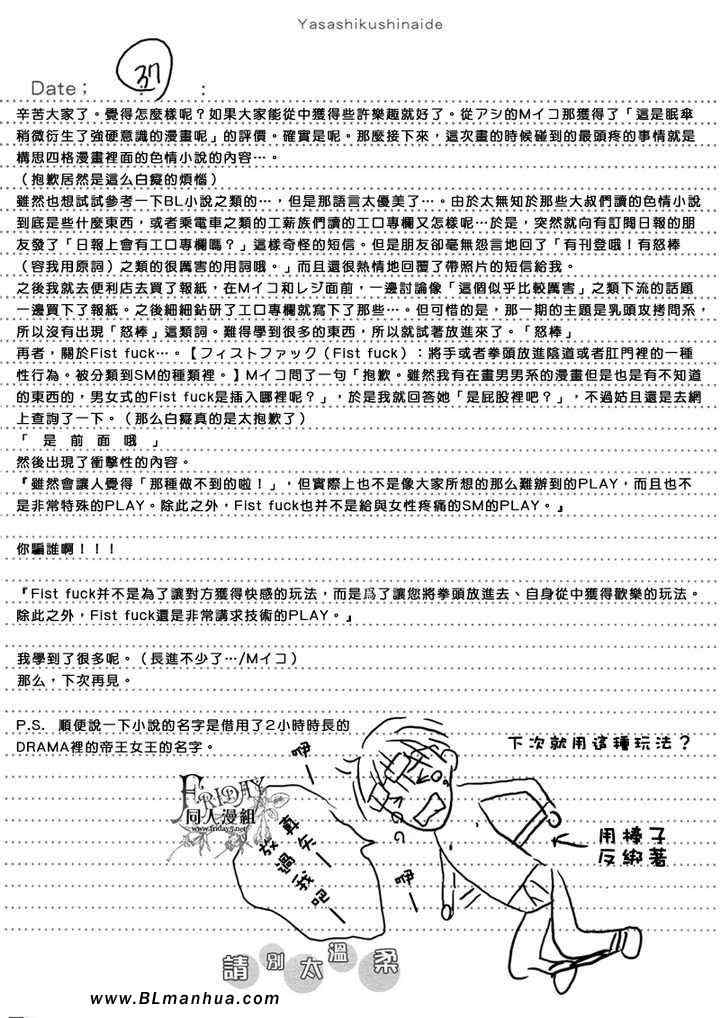 Yasashikushinaide
Date; 37 :
辛苦大家了。覺得怎麼樣呢?如果大家能從中獲得些許樂趣就好了。從アシのMイコ那獲得了「這是眠傘
稍微衍生了強硬意識的漫畫呢」的評價。確實是呢。那麼接下來,這次畫的時候碰到的最頭疼的事情就是
構思四格漫畫裡面的色情小說的內容…。
(抱歉居然是這么白癡的煩惱)
雖然也想試試參考一下BL小說之類的…,但是那語言太優美了…。由於太無知於那些大叔們讀的色情小說
到底是些什麼東西,或者乘電車之類的工薪族們讀的工口專欄又怎樣呢…於是,突然就向有訂閱日報的朋
友發了「日報上會有工口專欄嗎?」這樣奇怪的短信。但是朋友卻毫無怨言地回了「有刊登哦!有怒棒
(容我用原詞)之類的很厲害的用詞哦。」而且還很熱情地回覆了帶照片的短信給我。
之後我就去便利店去買了報紙,在Mイコ和レジ面前,一邊討論像「這個似乎比較厲害」之類下流的話題
一邊買下了報紙。之後細細鉆研了工口專欄就寫下了那些…。但可惜的是,那一期的主題是乳頭攻拷問系,
所以沒有出現「怒棒」這類詞。難得學到很多的東西,所以就試著放進來了。「怒棒」
再者,關於Fist fuck…。【フィストファック(Fist fuck):將手或者拳頭放進陰道或者肛門裡的一種
性行為。被分類到SM的種類裡。】Mイコ問了一句「抱歉。雖然我有在畫男男系的漫畫但是也是有不知道
的東西的,男女式的Fist fuck是插入哪裡呢?」,於是我就回答她「是屁股裡吧?」,不過姑且還是去網
上查詢了一下。(那么白癡真的是太抱歉了)
「 是 前 面 哦 」
然後出現了衝擊性的內容。
『雖然會讓人覺得「那種做不到的啦!」,但實際上也不是像大家所想的那么難辦到的PLAY,而且也不
是非常特殊的PLAY。除此之外,Fist fuck也并不是給與女性疼痛的SM的PLAY。』
你騙誰啊!!!
『Fist fuck并不是為了讓對方獲得快感的玩法,而是爲了讓您將拳頭放進去、自身從中獲得歡樂的玩法。
除此之外,Fist fuck還是非常講求技術的PLAY。』
我學到了很多呢。(長進不少了…/Mイコ)
那么,下次再見。
P.S. 順便說一下小說的名字是借用了2小時時長的
DRAMA裡的帝王女王的名字。
下次就用這種玩法?
咿—
FRIDAY
同人漫組
www.friday5.net
放過我吧—
咿—
用棒子
反綁著
請別太溫柔
www.BLmanhua.com